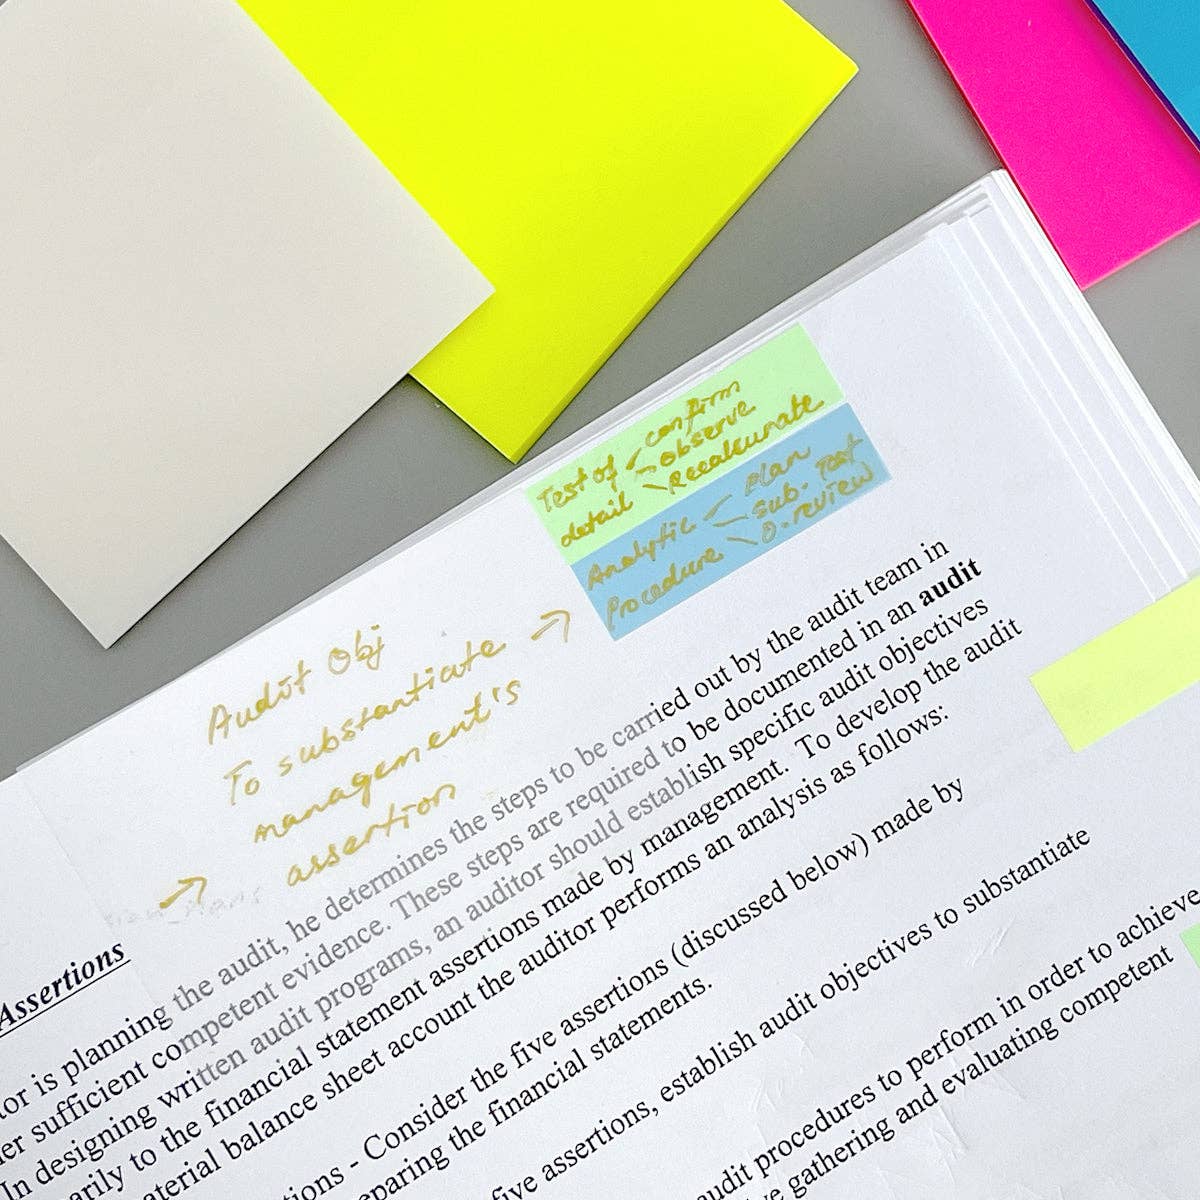 Test of - confirm
- observe
detail - Recalcunate
Analytic - plan
- sub. Test
Procedure - O. review
Audit Obj
To substantiate →
management's
assertion
→
Assertions
tor is planning the audit, he determines the steps to be carried out by the audit team in
er sufficient competent evidence. These steps are required to be documented in an audit
In designing written audit programs, an auditor should establish specific audit objectives
arily to the financial statement assertions made by management. To develop the audit
aterial balance sheet account the auditor performs an analysis as follows:
tions - Consider the five assertions (discussed below) made by
eparing the financial statements.
five assertions, establish audit objectives to substantiate
audit procedures to perform in order to achieve
ve gathering and evaluating competent